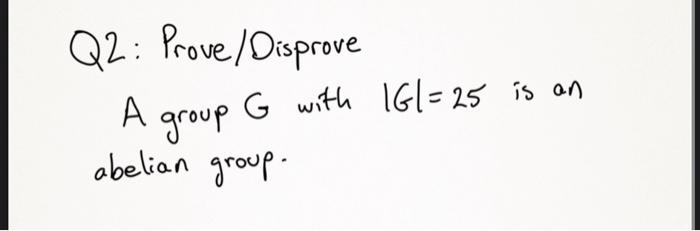 Q2: Prove/Disprove
A group G with |G|=25 is an
abelian group.